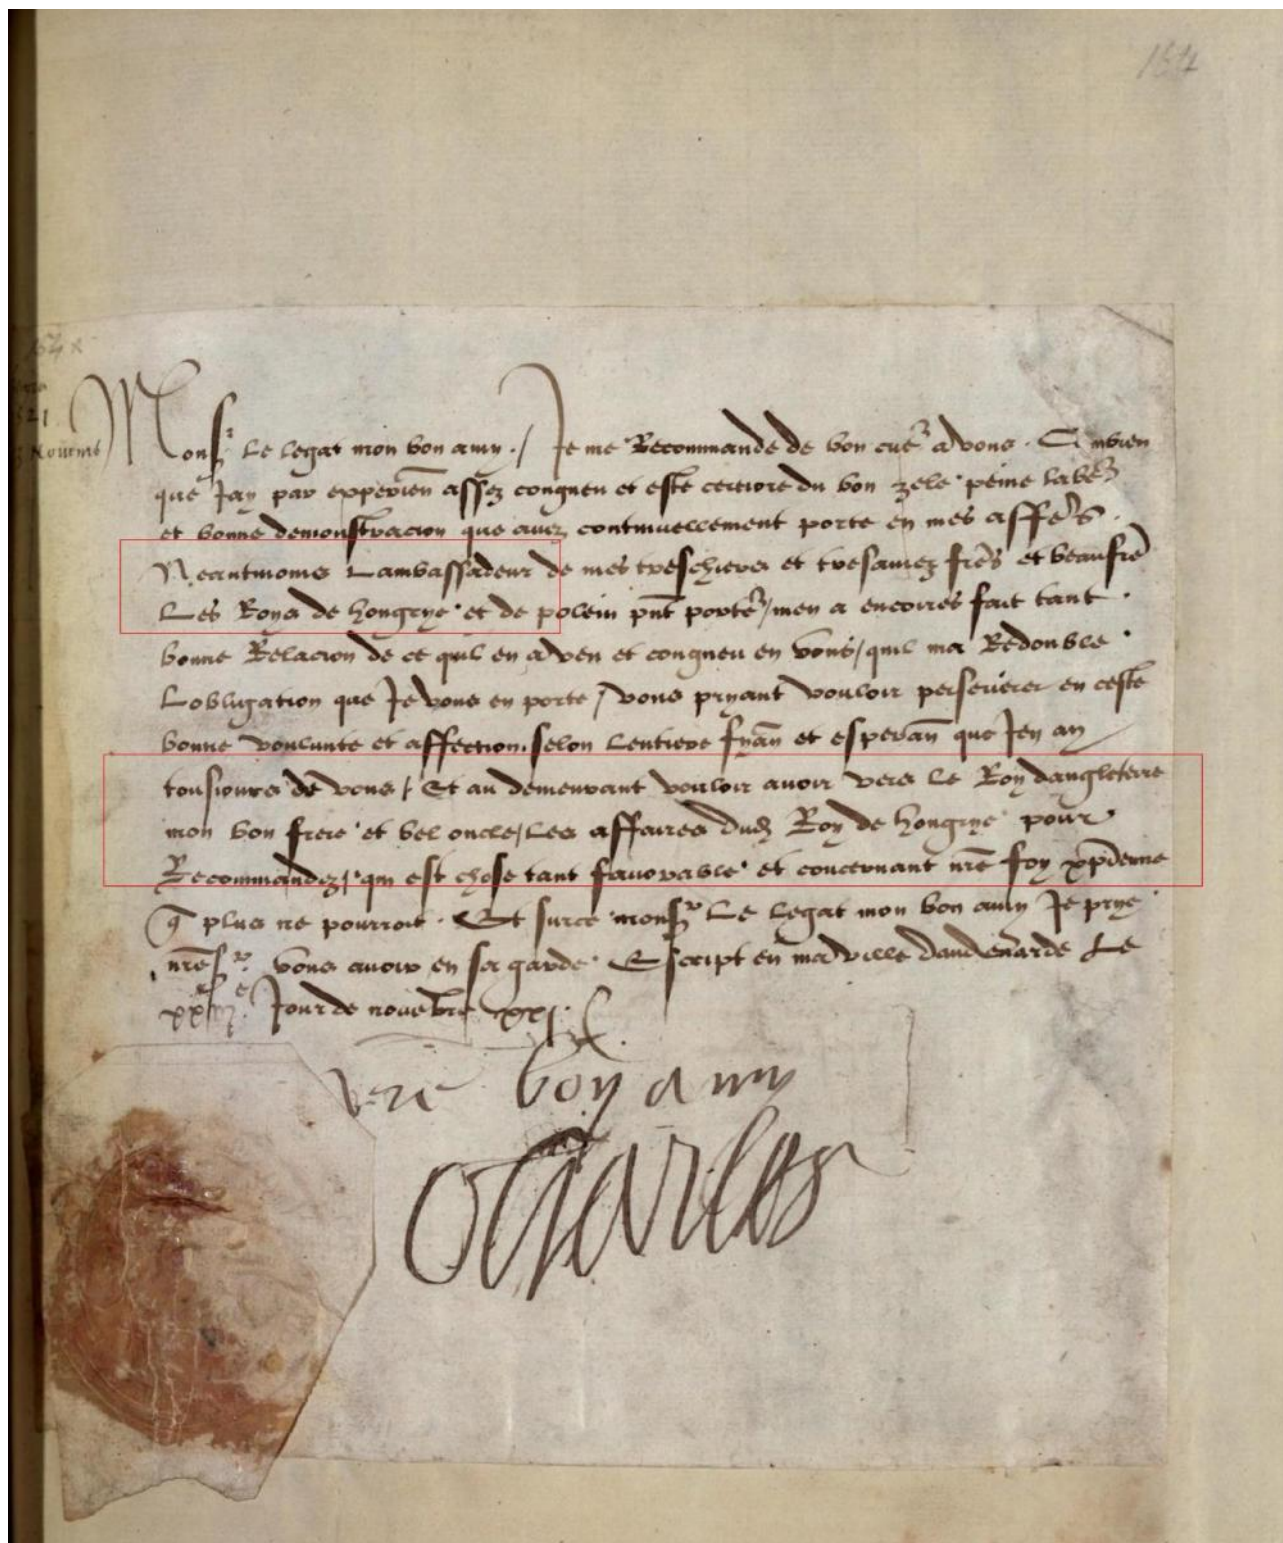 154
154
21
Nouemb
Mons.r le legat mon bon amy ./ Je me Recommande de bon cuer a vous . Combien
que Jay par experien assez congneu et este certiore du bon zele peine labeur
et bonne demonstracion que auez continuellement porte en mes affres .
Neantmoins Lambassadeur de mes treschiers et tresamez freres et beaufre
Les Roys de hongrye et de polein pnt porte.r / men a encoires fait tant
bonne Relacion de ce quil en a veu et congneu en vous / quil ma Redouble
Lobligation que Je vous en porte / vous pryant vouloir perseuerer en ceste
bonne voulunte et affection selon lentiere fyan et esperan que Jen ay
tousiours de vous / Et au demeurant vouloir auoir vers le Roy dangleterre
mon bon frere et bel oncle / les affaires dud Roy de hongrye pour
Recommandez / qui est chose tant fauorable et concernant nre foy xpienne
q plus ne pourroit . Et surce mons.r le legat mon bon amy Je prye
nres.r vous auoir en sa garde Escript en ma ville daudenarde Le
Jour de nouebre xxj .
vre bon amy
Charles